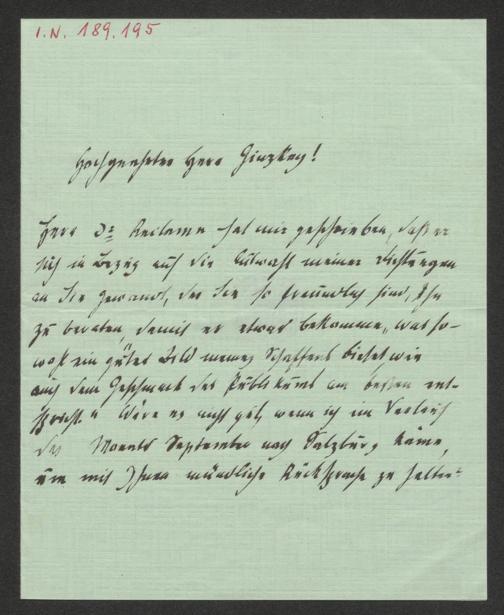 I.N. 189.195
Hochgeehrter Herr Ginzkey!
Herr Dr Reclam hat mir geschrieben, daß er
sich in Bezug auf die Auswahl meiner Dichtungen
an Sie gewandt, der Sie so freundlich sind, ihn
zu beraten, damit er etwas bekomme, „was so-
wohl ein gutes Bild meines Schaffens bietet wie
auch dem Geschmack des Publikums am besten ent-
spricht." Wäre es nicht gut, wenn ich im Verlauf
des Monats September nach Salzburg käme,
um mit Ihnen mündliche Rücksprache zu halten?